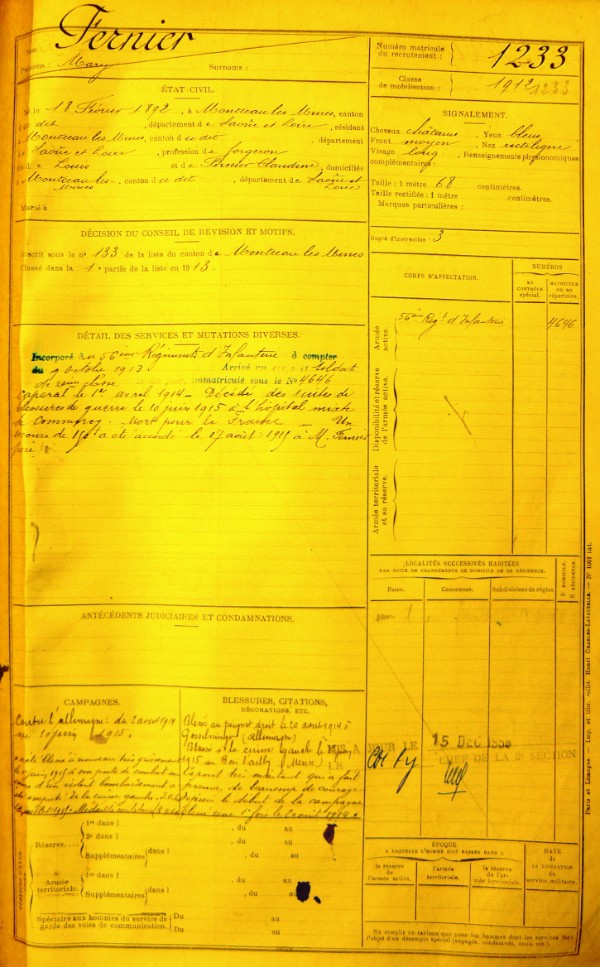 Fernier
Nom :
Prénoms : Mary Surnoms :
Numéro matricule du recrutement : 1233
Classe de mobilisation : 1912 1233
ÉTAT CIVIL.
Né le 18 Février 1892, à Montceau les Mines, canton
du dit, département de Saône et Loire, résidant
à Montceau les Mines, canton du dit, département
de Saône et Loire, profession de forgeron
de Louis et de Claudine, domiciliés
à Montceau les Mines, canton du dit, département de Saône et Loire
Marié à
SIGNALEMENT.
Cheveux châtains Yeux bleus
Front moyen Nez rectiligne
Visage long Renseignements physionomiques
complémentaires :
Taille : 1 mètre 68 centimètres.
Taille rectifiée : 1 mètre centimètres.
Marques particulières :
Degré d'instruction : 3
DÉCISION DU CONSEIL DE REVISION ET MOTIFS.
Inscrit sous le n° 133 de la liste du canton de Montceau les Mines
Classé dans la 1e partie de la liste en 1913.
CORPS D'AFFECTATION.
NUMÉROS
AU CONTRÔLE spécial.
MATRICULE OU AU répertoire.
Armée active.
56ème Régt d'Infanterie 4646
Disponibilité et réserve de l'armée active.
Armée territoriale et sa réserve.
DÉTAIL DES SERVICES ET MUTATIONS DIVERSES.
Incorporé au 56ème Régiment d'Infanterie à compter
du 9 octobre 1913. Arrivé au corps et Soldat
de 2ème classe immatriculé sous le No 4646
Caporal le 1er avril 1914 - Décédé des suites de
blessures de guerre le 10 juin 1915 à l'hôpital mixte
de Commercy - Mort pour la France - Un
secours de 150f a été accordé le 17 août 1915 à M. Fernier
père
LOCALITÉS SUCCESSIVES HABITÉES
PAR SUITE DE CHANGEMENTS DE DOMICILE OU DE RÉSIDENCE.
Dates. Communes. Subdivisions de région. D DOMICILE. R RÉSIDENCE.
ANTÉCÉDENTS JUDICIAIRES ET CONDAMNATIONS.
CAMPAGNES.
Contre l'allemagne : du 2 aout 1914
au 10 juin 1915.
BLESSURES, CITATIONS, DÉCORATIONS, ETC.
Blessé au poignet droit le 20 août 1914 à
(allemagne)
Blessé à la cuisse gauche le
1915 au (Meuse)
Caporal très méritant qui a fait
preuve de beaucoup de courage
depuis le début de la campagne
15 DEC 1930
CHEF DE LA 2e SECTION
Réserve...
1re dans l , du au
2e dans l , du au
Supplémentaires dans l , du au
Armée territoriale.
1re dans l , du au
Supplémentaires dans l , du au
Spéciales aux hommes du service de garde des voies de communication.
Du au
Du au
ÉPOQUE
A LAQUELLE L'HOMME DOIT PASSER DANS :
la réserve de l'armée active.
l'armée territoriale.
la réserve de l'armée territoriale.
DATE DE LA LIBÉRATION du service militaire.
Ne remplir ce tableau que pour les hommes dont les services font
l'objet d'un décompte spécial (engagés, condamnés, omis, etc.)